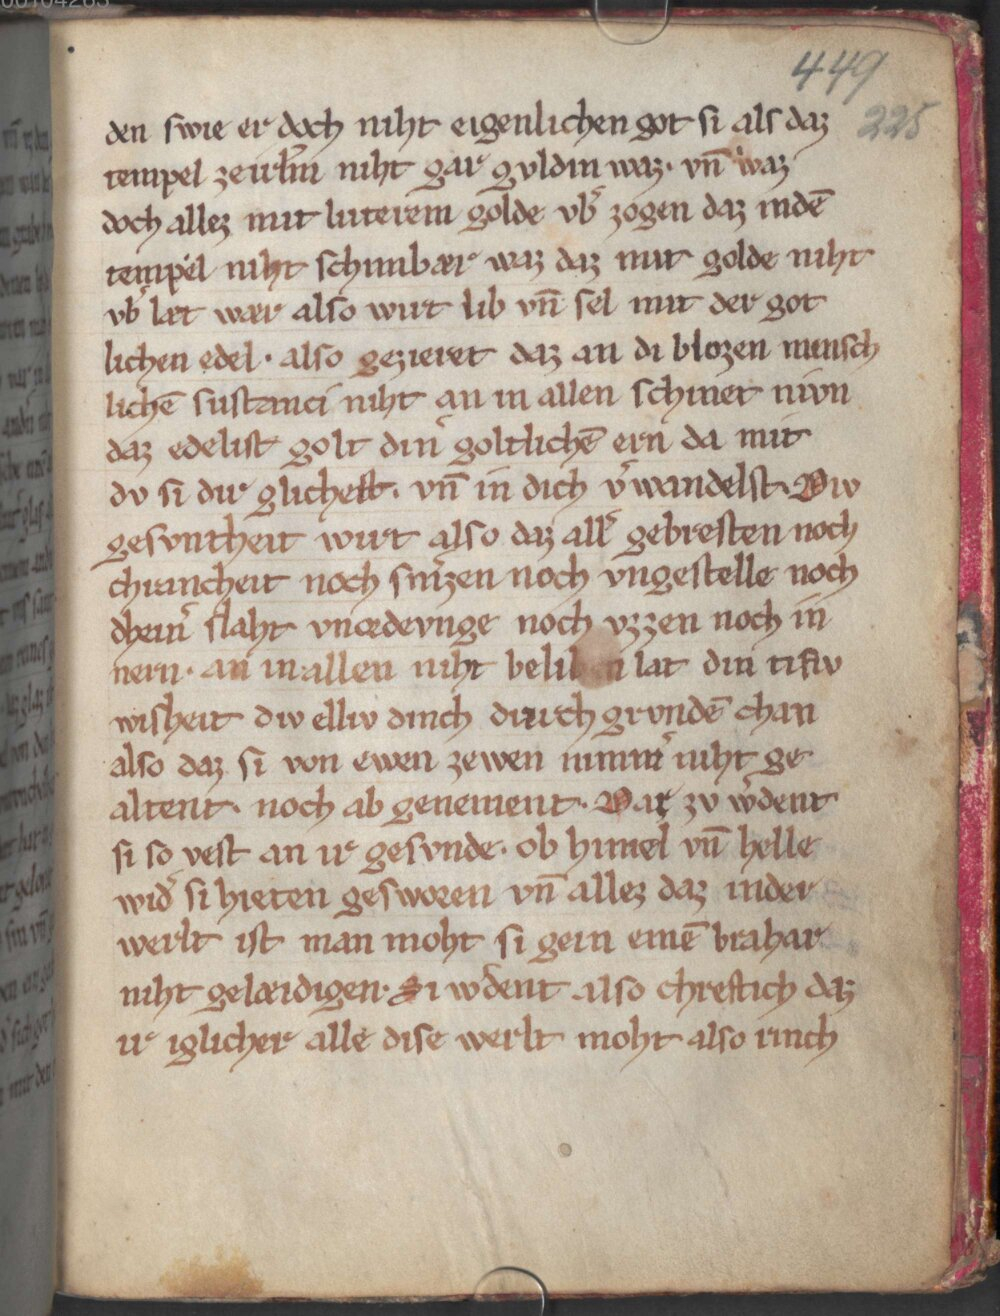 449
225
den swie er doch niht eigenlichen got si als daz
tempel zeirl̄m niht gar gvldin waz. vn̄ waz
doch allez mit luterem golde vb͛ zogen daz indē
tempel niht schinbær waz daz mit golde niht
vb͛ læt wær also wirt lib vn̄ sel mit der got
lichen edel. also gezieret daz an di blozen minsch
lichē sustanci niht an in allen schinet nivn
daz edelist golt din͛ goltlichē ern da mit
dv si dir glichest. vn̄ in dich v͛wandelst. Div
gesvntheit wirt also daz all͛ gebresten noch
chrancheit noch smerzen noch vngestelle noch
dhein͛ slaht vnœdevnge noch vzzen noch in
nern. an in allen niht beliben lat din tifiv
wisheit div elliv dinch durch grvndē chan
also daz si von ewen zewen nimm͛ niht ge
altent. noch ab genement. Dar zv w͛dent
si so vest an ir gesvnde. ob himel vn̄ helle
wid͛ si hieten gesworen vn̄ allez daz inder
werlt ist man moht si gein einē brahar
niht gelædigen. Si w͛dent also chreftich daz
ir iglicher alle dise werlt moht also rinch